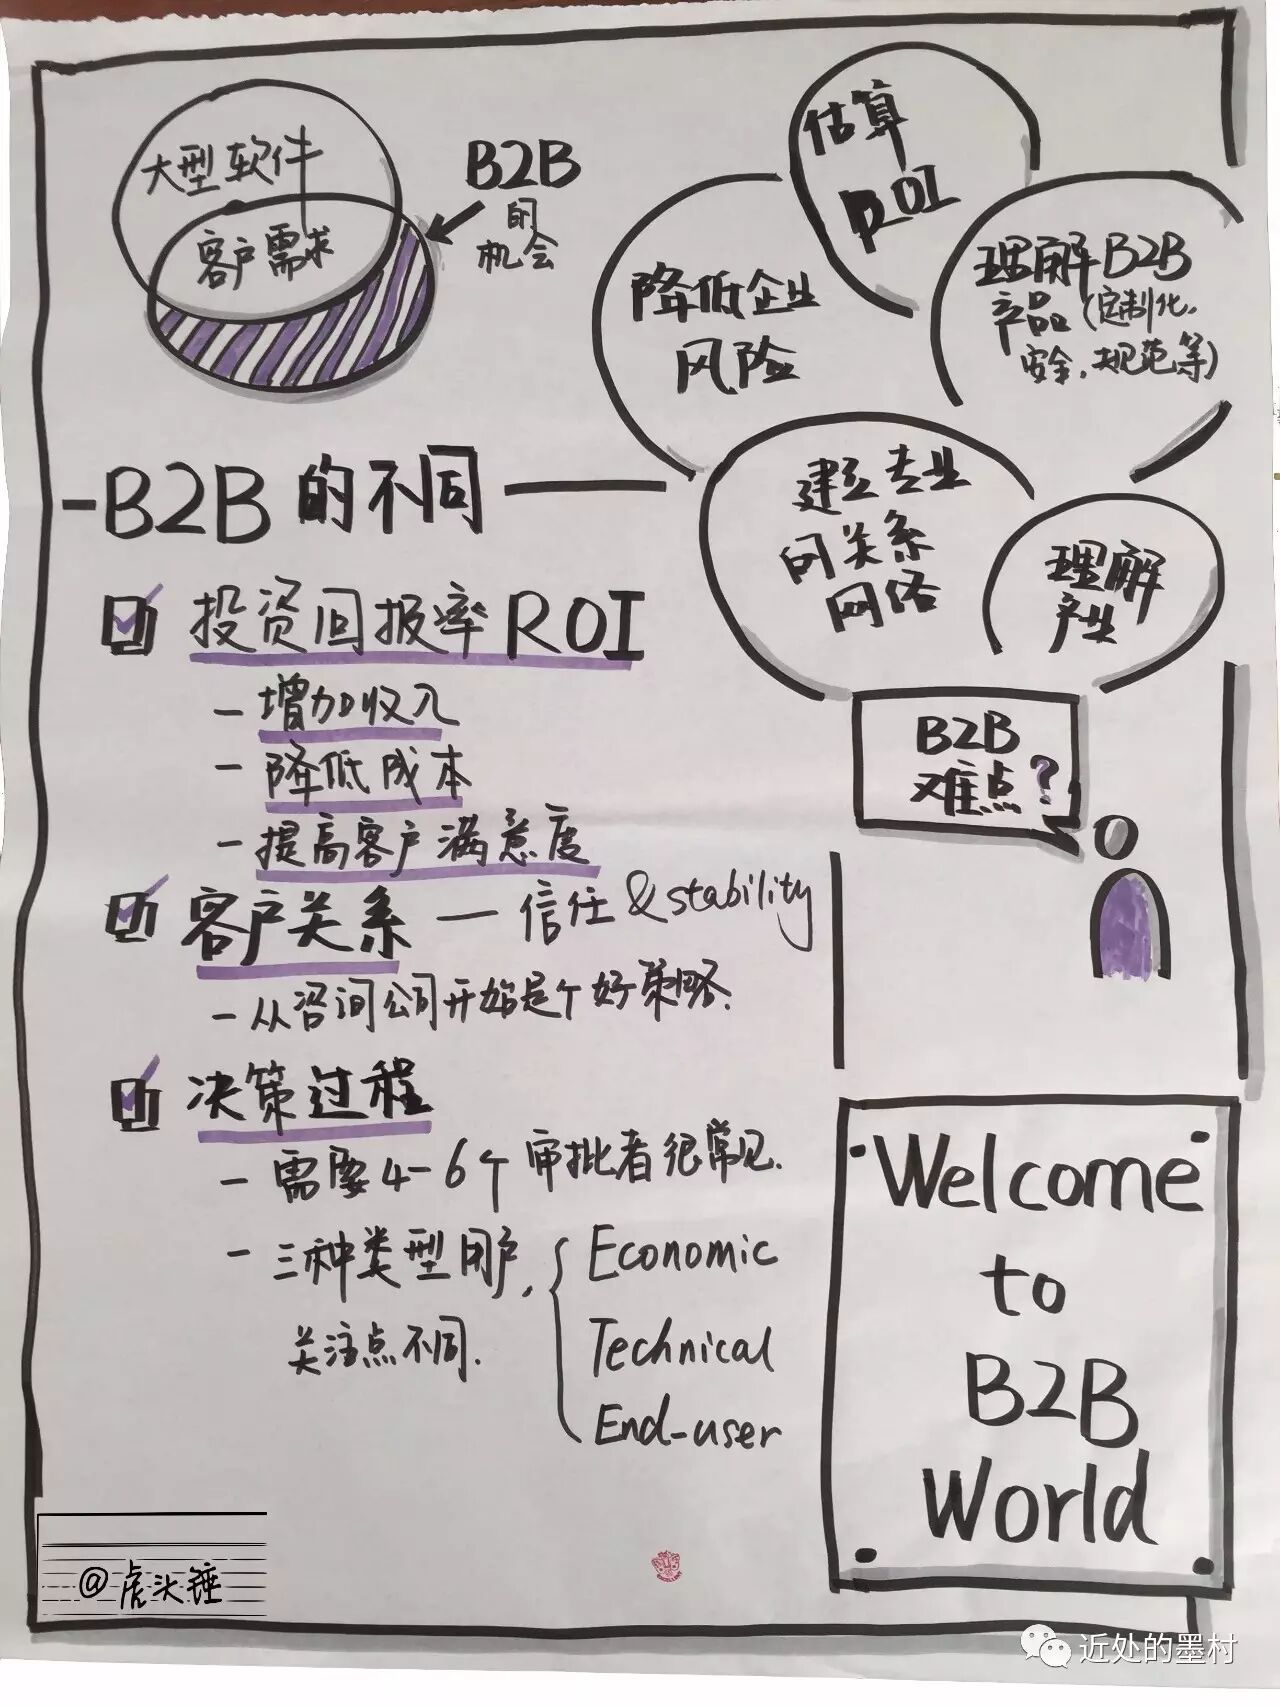 大型软件
客户需求
B2B
的
机会
估算
ROI
降低企业
风险
理解B2B
产品(定制化,
安全,规范等)
建立专业
的关系
网络
理解
产业
B2B
难点?
B2B的不同
投资回报率ROI
- 增加收入
- 降低成本
- 提高客户满意度
客户关系 — 信任&stability
- 从咨询公司开始是个好策略.
决策过程
- 需要4-6个审批者很常见.
- 三种类型用户,
关注点不同.
Economic
Technical
End-user
Welcome
to
B2B
World
@虎头锤
近处的墨村